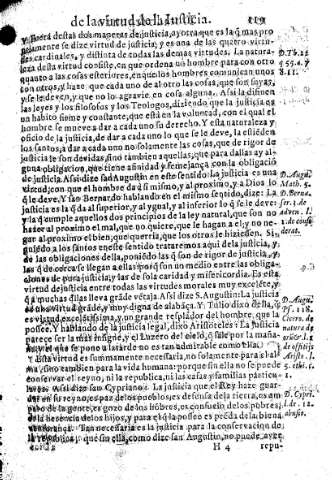 de la virtud de la Iusticia. 119
y fuera destas dos maneras de justicia, ay otra que es la q̃ mas pro
piamente se dize virtud de justicia; y es una de las quatro virtu-
des cardinales, y distinta de todas las demas virtudes. La natura-
leza desta virtud consiste, en que ordena un hombre para con otro
quanto a las cosas exteriores, en que los hombres comunican unos
con otros, y haze que cada uno de al otro las cosas, que son suyas,
y se le deven, y que no lo agravie, en cosa alguna. Assi la difinen
las leyes y los filosofos y los Teologos, diziendo que la justicia es
un habito firme y constante, que està en la voluntad, con el qual el
hombre se mueve a dar a cada uno su derecho. Y esta naturaleza y
oficio de la justicia, de dar a cada uno lo que se le deve, la estiēdē
los santos, a dar a cada uno no solamente las cosas, que de rigor de
justicia le son devidas, sino tambien aquellas; que para dallas ay al-
guna obligacion, que tiene afinidad y semejança con la obligacio
de justicia. Assi dize San Agustin en este sentido: La justicia es una
virtud; con que el hombre da q̃ si mismo, y al proximo, y a Dios lo
q̃ le deve. Y san Bernardo hablando en el mismo sentido, dize: La
justicia es la q̃ da al superior, y al ygual, y al inferior lo q̃ se le deve:
y la q̃ cumple aquellos dos principios de la ley natural, que son no
hazer al proximo el mal, que no quiere, que le hagan a el; y no ne-
gar al proximo el bien, que querria, que los otros le hiziessen. Si-
guiēdo a los santos en este sentido trataremos aqui de la justicia, y
de las obligaciones della, poniēdo las q̃ son de rigor de justicia, y
las q̃ de cerca se llegan a ellas: porq̃ son un medio entre las obliga-
ciones de pura justicia; y las de sola caridad y misericordia. Es esta
virtud de justicia entre todas las virtudes morales muy excelēte, y
q̃ a muchas dellas lleva grāde vētaja. Assi dize S. Augustin: La justicia
es una virtud grāde, y muy digna de alabāça. Y Tulio dixo della, q̃
es virtud excelētissima, y no grande resplādor del hombre, que la
possee. Y hablando de la justicia legal, dixo Aristoteles: La justicia
parece ser la mas insigne, y el luzero del cielo,
y el que se pone la tarde no es tan admirable como ella.
Y esta virtud es summamente necessaria, no solamente para el al
ma, sino tambien para la vida humana: porque sin ella no se puede
conservar el reyno, ni la republica, ni las casas y familias particu-
lares. Assi dize san Cypriano: La justicia que el Rey haze guar-
dar en su reyno, es paz de los pueblos, es defensa de la tierra, es am-
paro de la gente, es gozo de los hōbres, es consuelo de los pobres,
es herencia de los hijos, y para el q̃ la possee es prēda de la biena-
venturança. Es tan necessaria la justicia para la conservacion de
la republica, que sin ella, como dize san Augustin, no puede aver
H 4 repu-
D. Th. 22
q 55. a. 1
8. 11.
D. Augu.
Math. 5.
D. Berna.
ser. 1. de
adven.
D. Augu.
Ps. 118.
Cicero. de
natura de
Aristo. l.
5. ethi. c.
1.
D. Cypri.
de l. 12.
abusio.